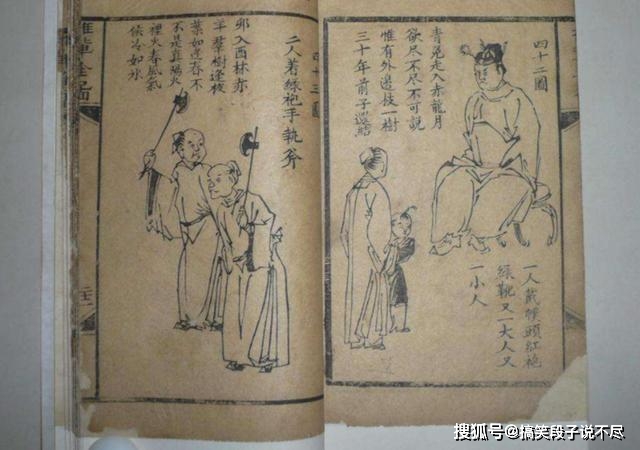 四十二圖
青兎走入赤龍月
欲尽不尽不可說
惟有外邊枝一樹
三十年前子還結
一人戴幞頭紅袍
綠靴又一大人又
一小人
四十三圖
二人着綠袍手執斧
邪入酉林亦
羊羣樹逢枝
葉如逢春不
不是真陽火
裡火春風氣
候冷如氷
搜狐号@搞笑段子说不尽